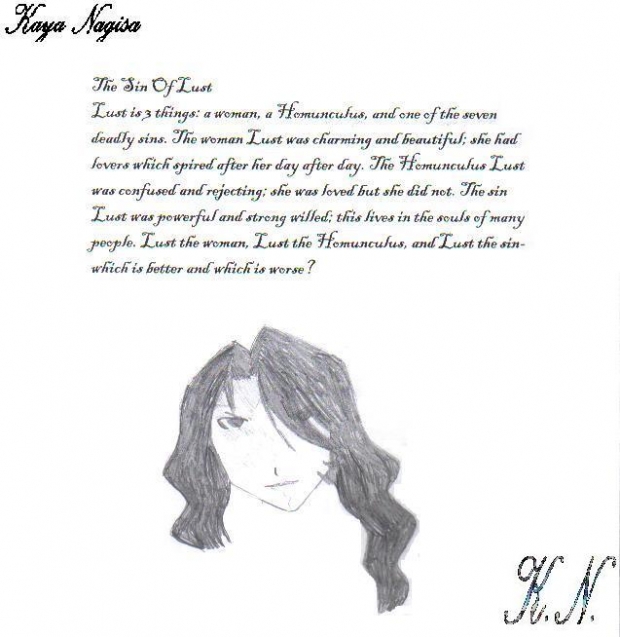 Kaya Nagisa
The Sin Of Lust
Lust is 3 things: a woman, a Homunculus, and one of the seven
deadly sins. The woman Lust was charming and beautiful; she had
lovers which spired after her day after day. The Homunculus Lust
was confused and rejecting; she was loved but she did not. The sin
Lust was powerful and strong willed; this lives in the souls of many
people. Lust the woman, Lust the Homunculus, and Lust the sin-
which is better and which is worse?
K.N.